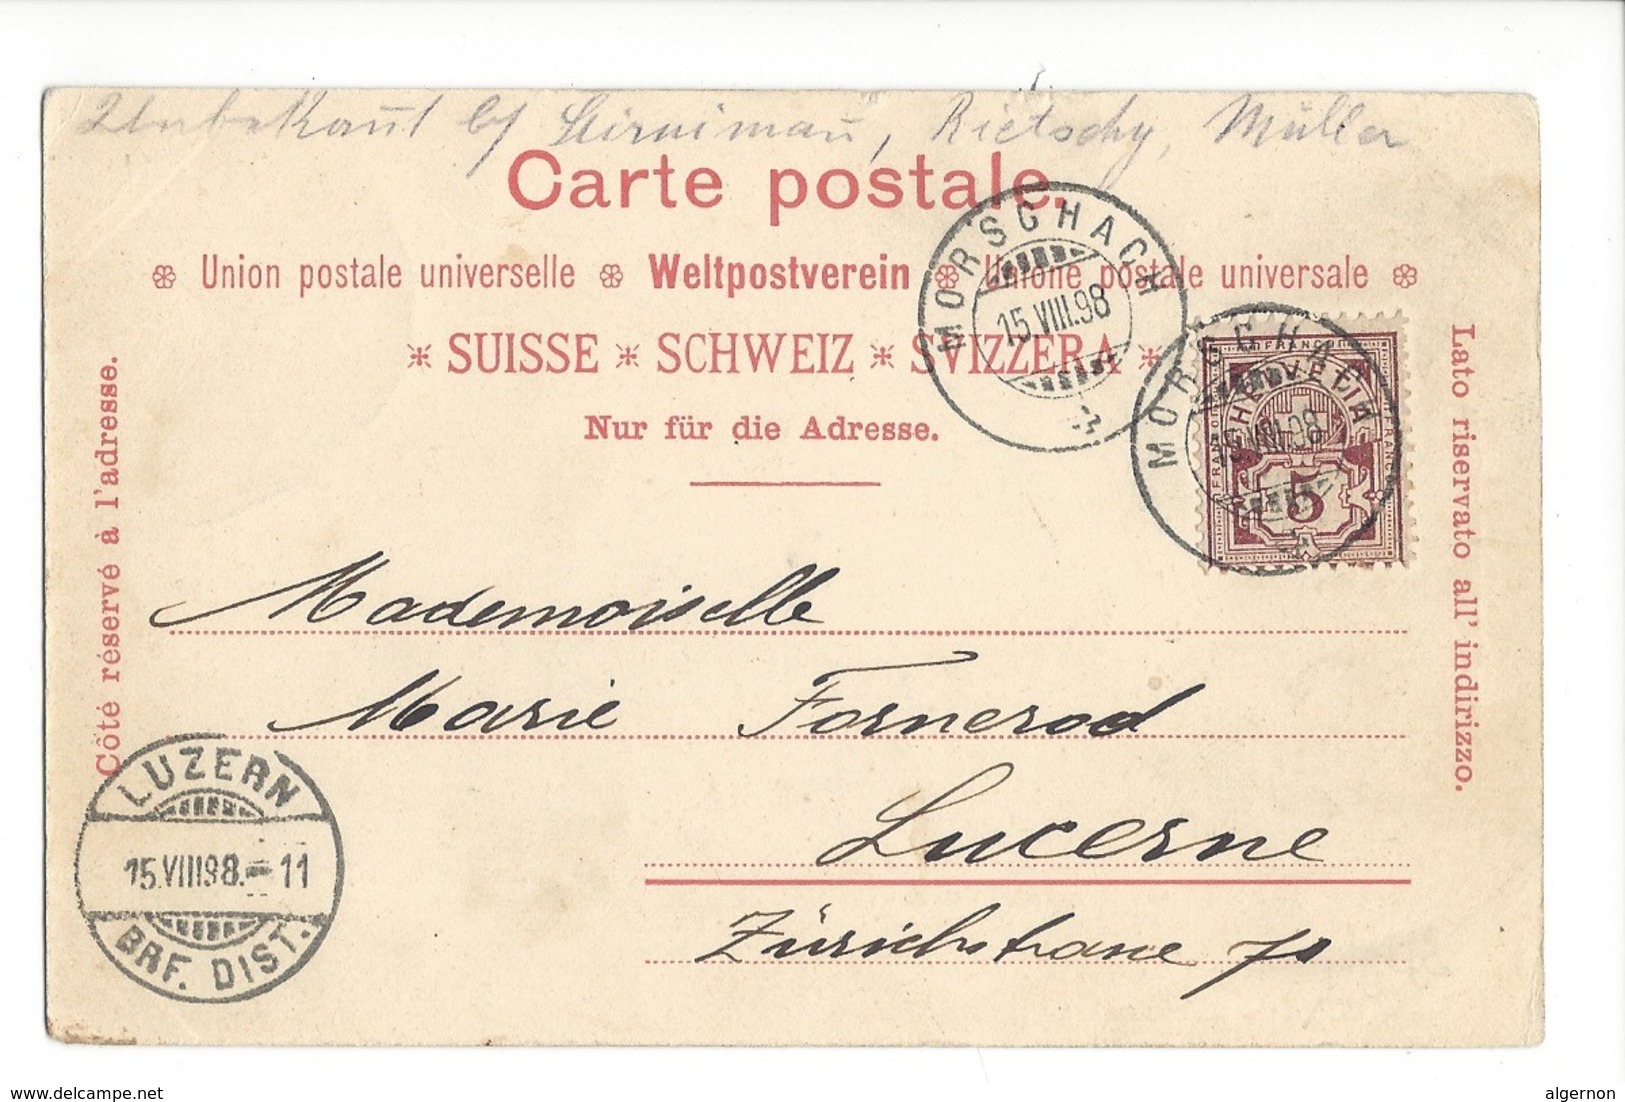 Unbekannt bf Stirnimann, Rietschy, Müller
Carte postale.
Union postale universelle Weltpostverein Unione postale universale
SUISSE * SCHWEIZ * SVIZZERA *
Nur für die Adresse.
MORSCHACH
15.VIII.98
MORSCHACH
15.VIII.98
FRANCO
HELVETIA
FRANCO FRANCO
5
Côté réservé à l'adresse.
Lato riservato all' indirizzo.
Mademoiselle
Marie Fornerod
Lucerne
Zürichstrasse
LUZERN
15.VIII98.-11
BRF. DIST.
www.delcampe.net
algernon